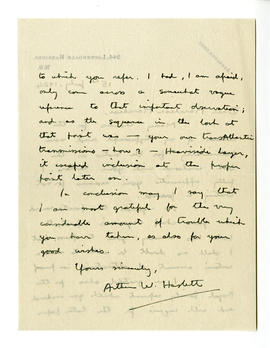 to which you refer. I had, I am afraid,
only come across a somewhat vague
reference to that important observation;
and as the sequence in the book at
that point was — your own transatlantic
transmissions — how? — Heaviside layer,
it escaped inclusion at the proper
point later on.
In conclusion may I say that
I am most grateful for the very
considerable amount of trouble which
you have taken, as also for your
good wishes.
Yours sincerely,
Arthur W. Haslett